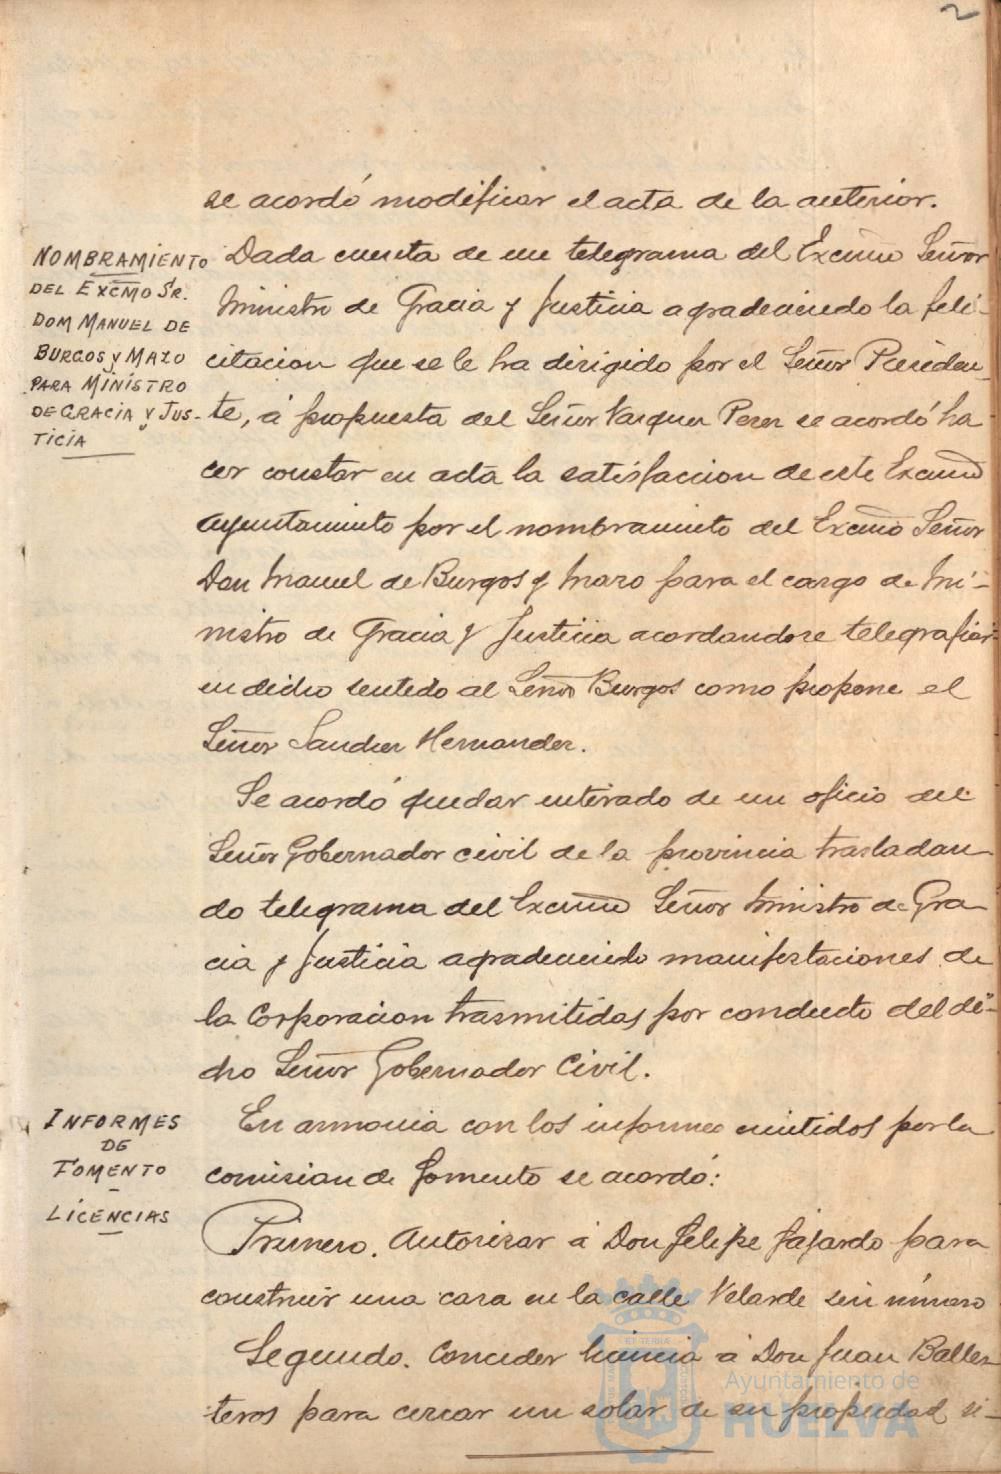 2
se acordó modificar el acta de la anterior.
NOMBRAMIENTO
DEL EXCMO SR.
DOM MANUEL DE
BURGOS Y MAZO
PARA MINISTRO
DE GRACIA Y JUS-
TICIA
Dada cuenta de un telegrama del Excmo Señor
Ministro de Gracia y Justicia agradeciendo la feli-
citacion que se le ha dirigido por el Señor Presiden-
te, á propuesta del Señor Vazquez Perez se acordó ha
cer constar en acta la satisfaccion de este Excmo
Ayuntamiento por el nombramiento del Excmo Señor
Don Manuel de Burgos y Mazo para el cargo de Mi-
nistro de Gracia y Justicia acordandose telegrafiar
en dicho sentido al Señor Burgos como propone el
Señor Sanchez Hernandez.
Se acordó quedar enterado de un oficio del
Señor Gobernador civil de la provincia trasladan
do telegrama del Excmo Señor Ministro de Gra
cia y Justicia agradeciendo manifestaciones de
la Corporacion trasmitidas por conducto del di-
cho Señor Gobernador Civil.
INFORMES
DE
FOMENTO
-
LICENCIAS
En armonia con los informes emitidos por la
comision de fomento se acordó:
Primero. Autorizar á Don Felipe Fajardo para
construir una casa en la calle Velarde sin número
Segundo. Conceder licencia á Don Juan Balles
teros para cercar un solar de su propiedad si-
Ayuntamiento de
HUELVA